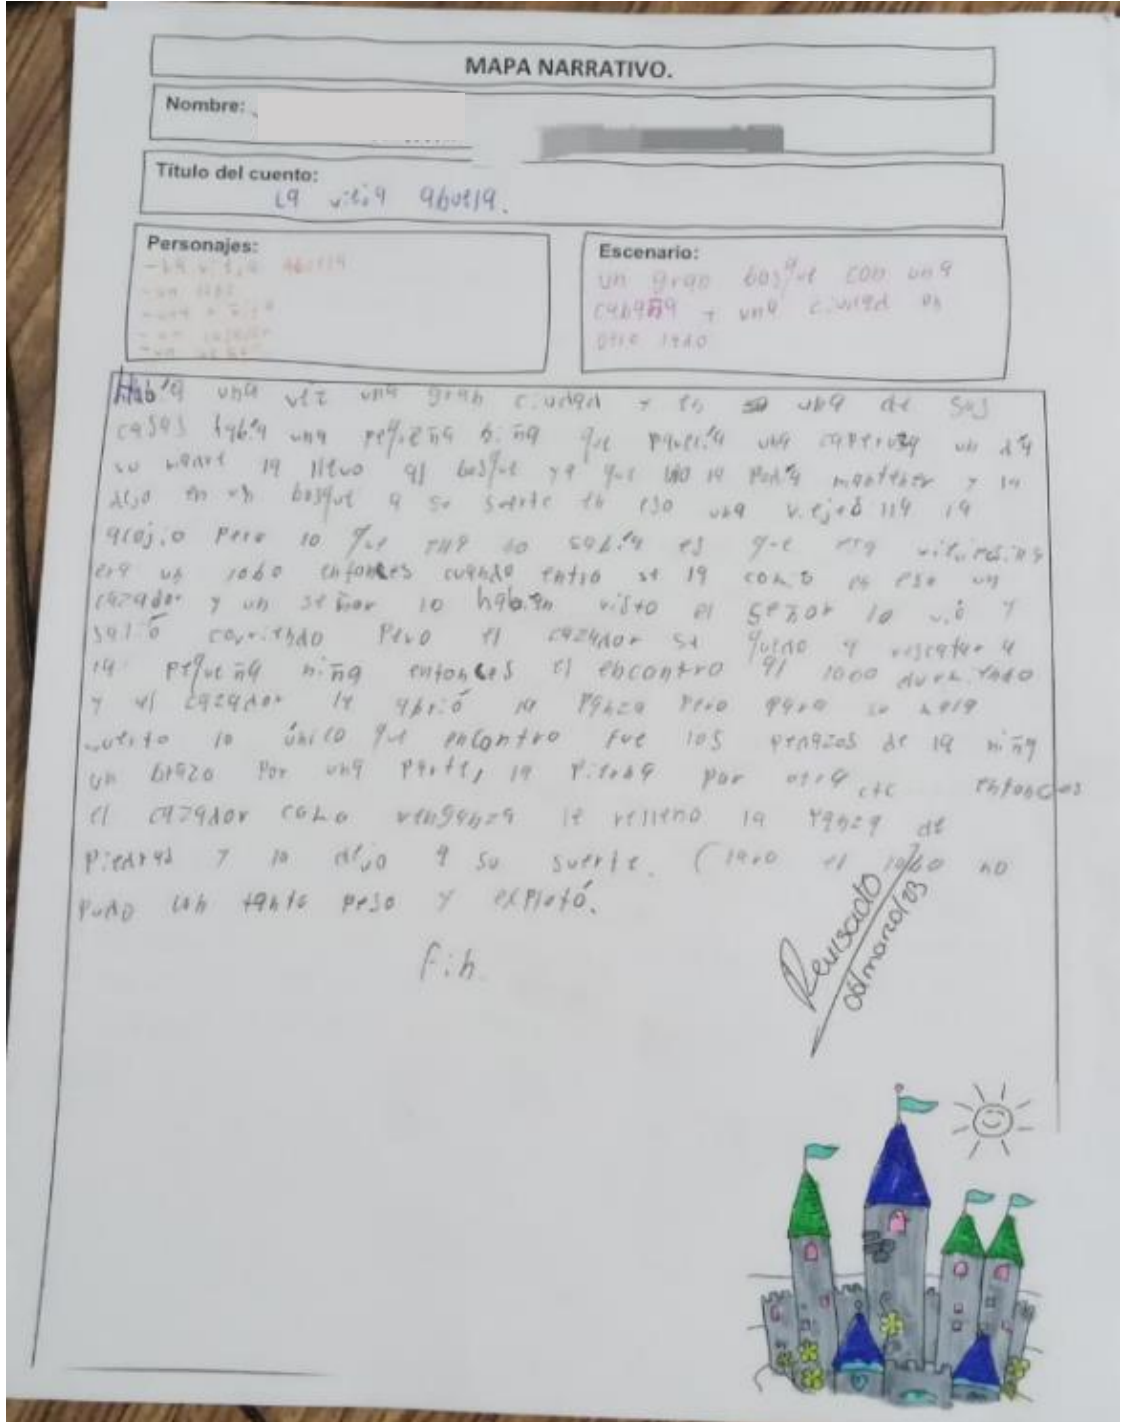 MAPA NARRATIVO.
Nombre:
Título del cuento:
La vieja abuela.
Personajes:
- La vieja abuela
- un lobo
- una niña
- un cazador
- un señor
Escenario:
un gran bosque con una
cabaña y una ciudad en
otro lado
Había una vez una gran ciudad y en una de sus
casas había una pequeña niña que parecía una caperuza un día
su madre la llevo al bosque ya que no la podía mantener y la
dejo en un bosque a su suerte en eso una viejesilla la
acojio pero lo que ella no sabía es que era
era un lobo entonces cuando entro se la comió en eso un
cazador y un señor lo habían visto el señor lo vió y
salió corriendo pero el cazador se quedo a rescatar a
la pequeña niña entonces el encontro al lobo durmiendo
y el cazador le abrió la panza pero para su mala
suerte lo único que encontro fue los pedazos de la niña
un brazo por una parte, la pierna por otra etc entonces
el cazador como venganza le relleno la panza de
piedras y lo dejo a su suerte. Claro el lobo no
pudo con tanto peso y explotó.
Fin.
Revisado
06/marzo/23